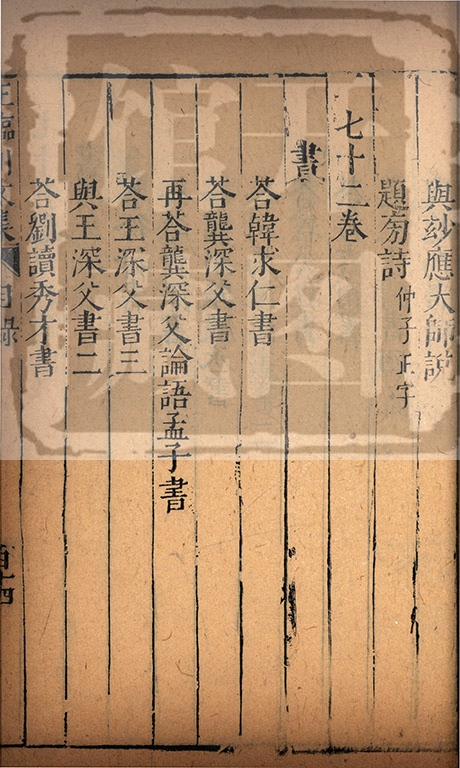 與妙應大師說
題旁詩仲子正字
七十二卷
書
荅韓求仁書
荅龔深父書
再荅龔深父論語孟子書
荅王深父書三
與王深父書二
荅劉讀秀才書
王臨川文集 目錄 百十四